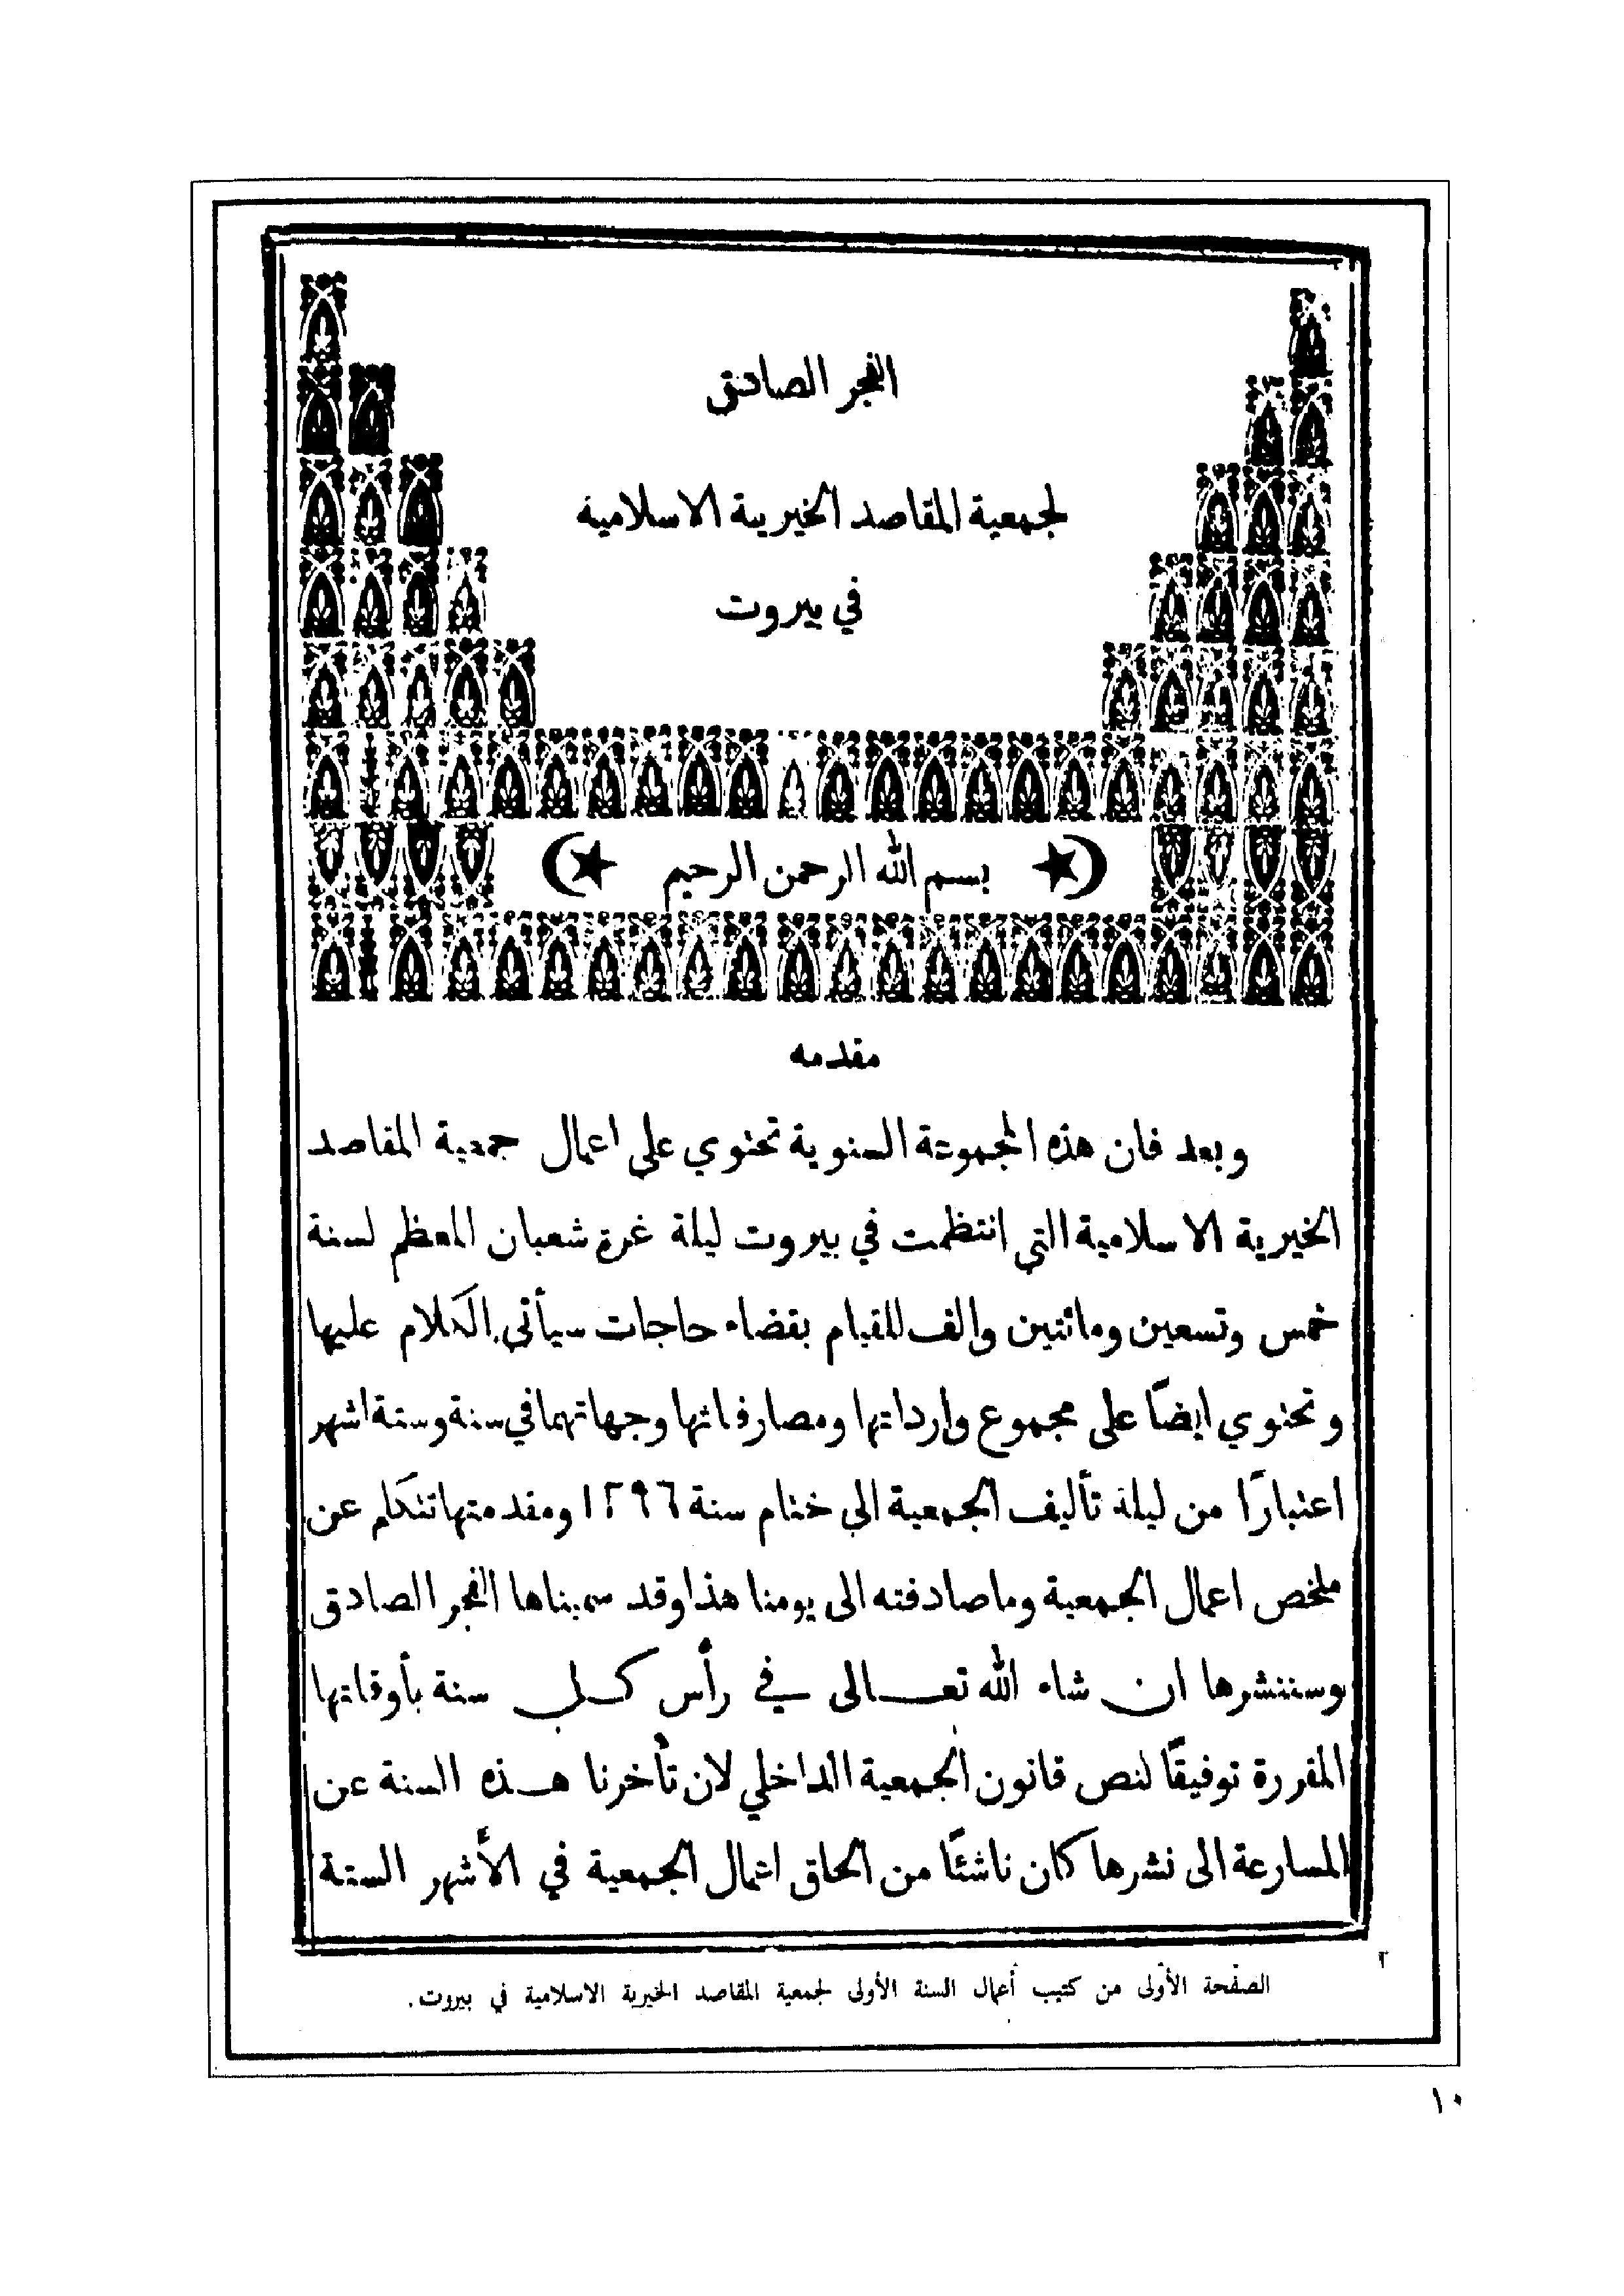 الفجر الصادق
لجمعية المقاصد الخيرية الاسلامية
في بيروت
بسم الله الرحمن الرحيم
مقدمه
وبعد فان هذه المجموعة السنوية تحتوي على اعمال جمعية المقاصد
الخيرية الاسلامية التي انتظمت في بيروت ليلة غرة شعبان المعظم لسنة
خمس وتسعين ومائتين والف للقيام بقضاء حاجات سيأتي الكلام عليها
وتحتوي ايضاً على مجموع وارداتها ومصارفاتها وجهاتهما في سنة وستة اشهر
اعتباراً من ليلة تأليف الجمعية الى ختام سنة ١٢٩٦ ومقدمتها تتكلم عن
ملخص اعمال الجمعية وما صادفته الى يومنا هذا وقد سميناها الفجر الصادق
وسننشرها ان شاء الله تعالى في رأس كل سنة بأوقاتها
المقررة توفيقاً لنص قانون الجمعية الداخلي لان تأخرنا هذه السنة عن
المسارعة الى نشرها كان ناشئاً من الحاق اعمال الجمعية في الأشهر الستة
٢
الصفحة الأولى من كتيب أعمال السنة الأولى لجمعية المقاصد الخيرية الاسلامية في بيروت.
١٠